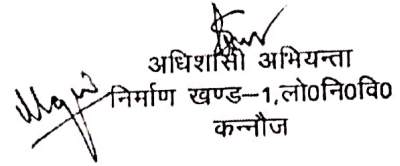 अधिशासी अभियन्ता
निर्माण खण्ड–1,लो0नि0वि0
कन्नौज